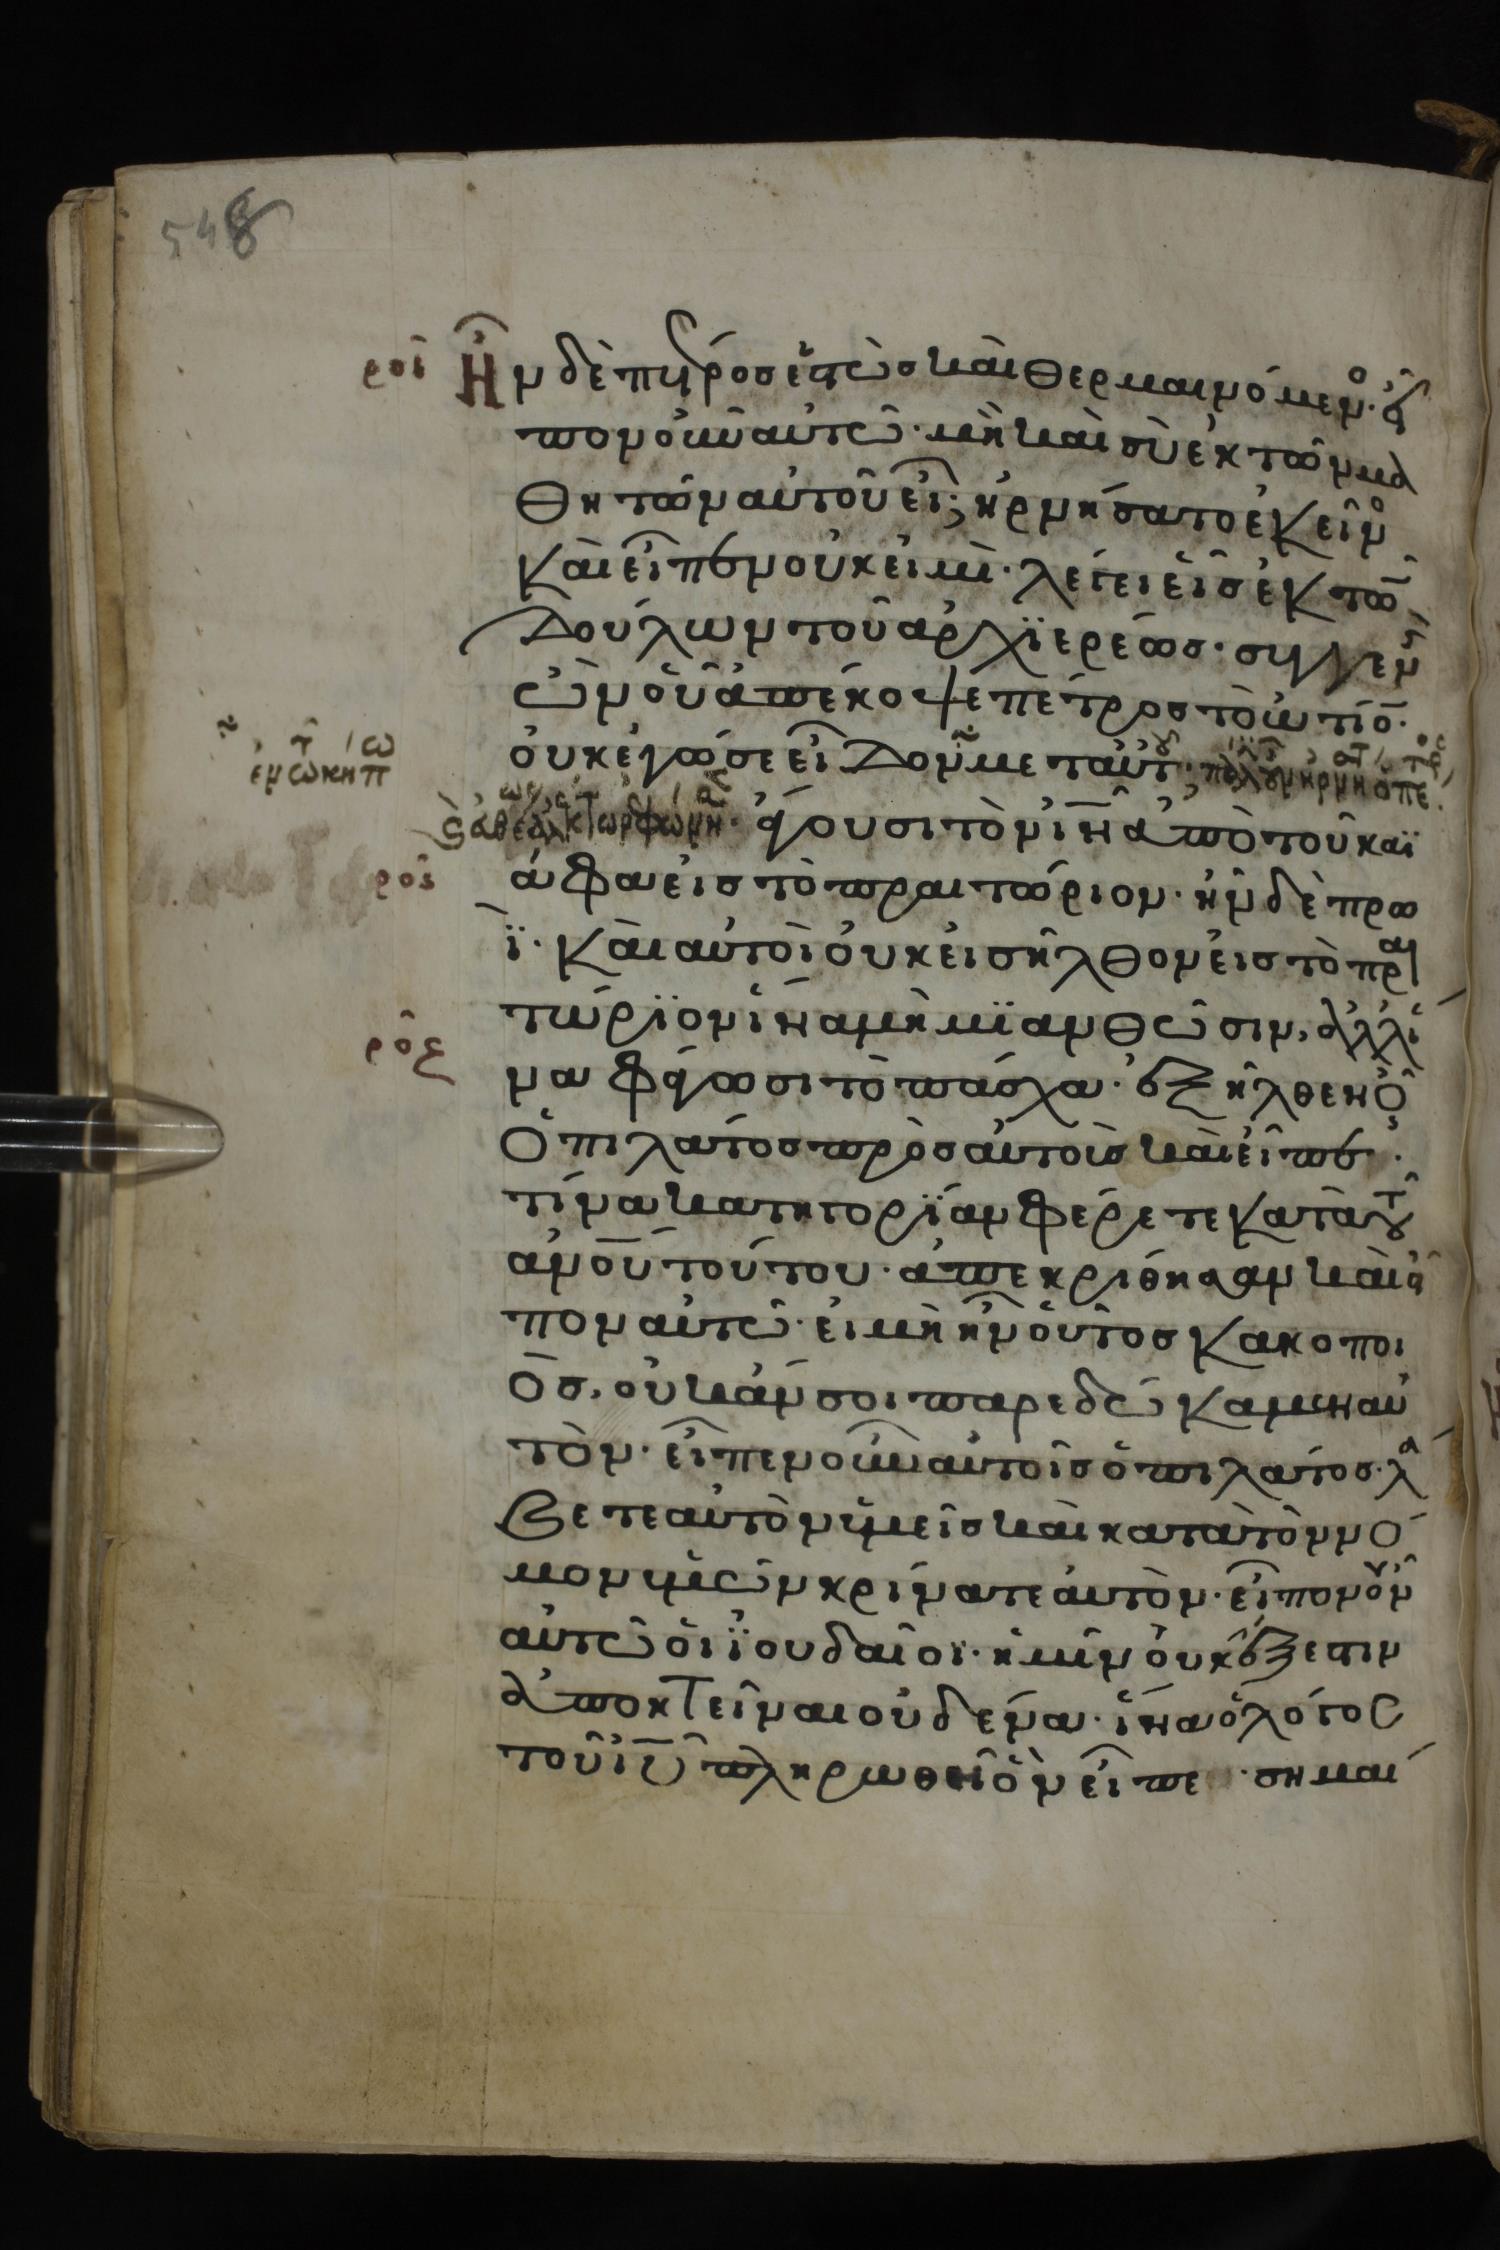 548
ροε Ἦν δὲ πέτρος ἑστὼς καὶ θερμαινόμενο. εἶ
πον οὖν αὐτῶ· μὴ καὶ σὺ ἐκ τῶν μα
θητῶν αὐτοῦ εἶ; ἠρνήσατο ἐκεῖνο
καὶ εἶπεν οὐκ εἰμὶ· λέγει εἷς ἐκ τῶ
δούλων τοῦ ἀρχϊερέως· συγγενὴ
ὢν οὗ ἀπέκοψε πέτρος τὸ ὠτίο·
οὐκ ἐγώ σε εἶδον μετ αὐτου· πάλιν οὖν ἠρνήσατο πετρο
ἐν τῶ κήπω
καὶ εὐθέως ἀλέκτωρ ἐφώνησ· ἄγουσι τὸν ἰν ἀπὸ τοῦ καϊ
ροϛ άφα εἰς τὸ πραιτώριον· ἦν δὲ πρω
ῒ· καὶ αὐτοὶ οὐκ εἰσῆλθον εἰς τὸ πραι
ροζ τώρϊον ἵνα μὴ μϊανθῶσιν, ἀλλ ἵ
να φάγωσι τὸ πάσχα· ἐξῆλθεν οὖ
ὁ πιλάτος πρὸς αὐτοὺς καὶ εἶπεν·
τίνα κατηγορΐαν φέρετε κατὰ του
ανου τούτου· ἀπεκρίθησαν καὶ εἶ
πον αὐτῶ· εἰ μὴ ἦν οὗτος κακοποι
ὸς, οὐκ ἄν σοι παρεδώκαμεν αὐ
τὸν· εἶπεν οὖν αὐτοῖς ὁ πιλάτος· λά
βετε αὐτὸν ὑμεῖς καὶ κατὰ τὸν νό
μον ὑμῶν κρίνατε αὐτὸν· εἶπον οὖν
αὐτῶ οἱ ϊουδαῖοι· ἡμῖν οὐκ ἔξεστιν
ἀποκτεῖναι οὐδένα· ἵνα ὁ λόγος
τοῦ ιυ πληρωθῆ ὃν εἶπε · σημαί